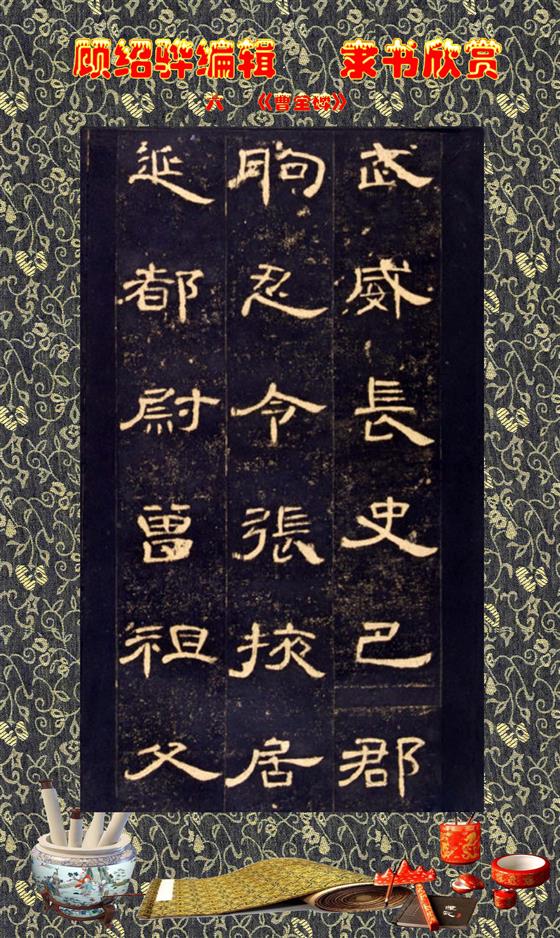 顾绍骅编辑 隶书欣赏
六 《曹全碑》
武威長史巴郡
朐忍令張掖居
延都尉曾祖父